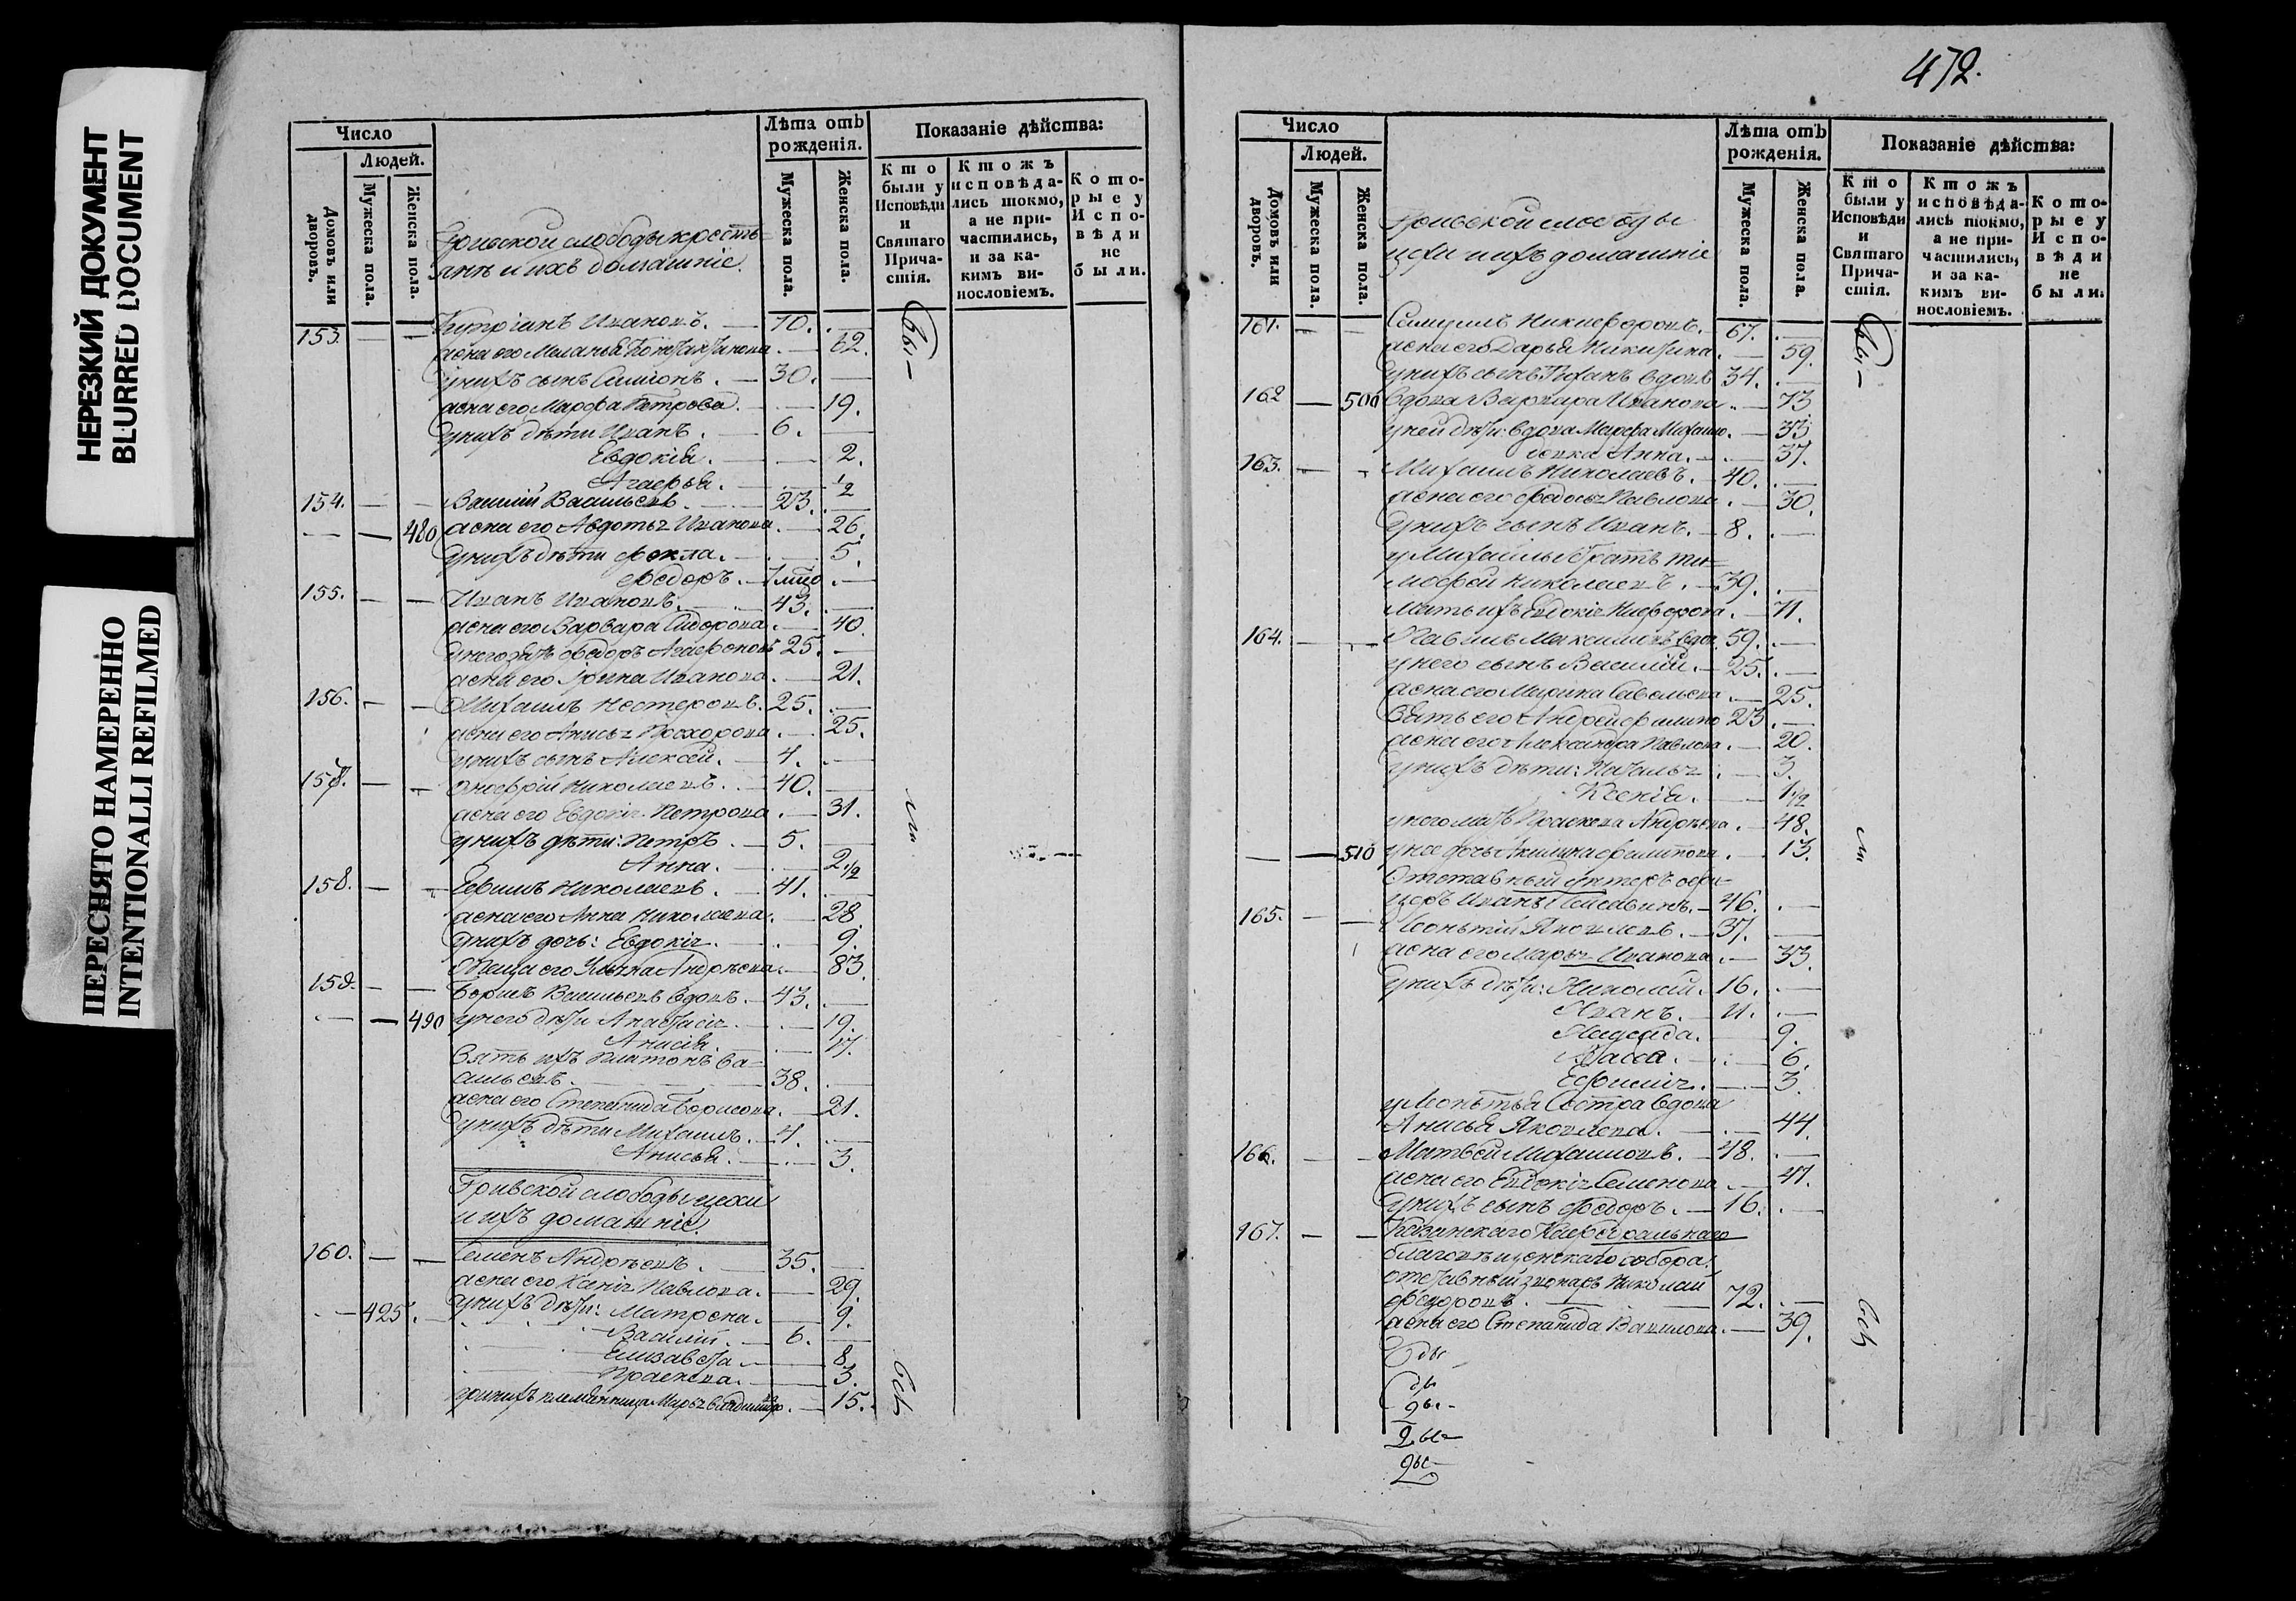 НЕРЕЗКИЙ ДОКУМЕНТ
BLURRED DOCUMENT
ПЕРЕСНЯТО НАМЕРЕННО
INTENTIONALLI REFILMED
Число
Людей.
Домовъ или дворовъ.
Мужеска пола.
Женска пола.
Лѣта отъ рожденія.
Мужеска пола.
Женска пола.
Показаніе дѣйства:
Кто были у Исповѣди и Святаго Причастія.
Ктожъ исповѣдались токмо, а не причастились, и за какимъ винословіемъ.
Которые у Исповѣди не были.
Гривской слободы кресть-
яне и ихъ домашніе.
153. — — Ивановъ. — 70. — Бы —
жена его Меланья . — 62.
у нихъ сынъ Симіонъ. — 30. —
жена его Марфа Петрова. — 19.
у нихъ дѣти Иванъ. — 6. —
Евдокія. — 2.
Агафья. — 1/2
154. — — Василій Васильевъ. — 23. —
— — 480 жена его Авдотья Иванова. — 26.
у нихъ дѣти Фекла. — 5.
Федоръ. —
155. — — Иванъ Ивановъ. — 43. —
жена его Варвара Сидорова. — 40.
у него зять Федоръ Агафоновъ 25. —
жена его Ирина Иванова. — 21.
156. — — Михаилъ Нестеровъ. 25. —
жена его Анисья Прохорова. — 25.
у нихъ сынъ Алексей. — 4. —
157. — — Онофрій Николаевъ. — 40. —
жена его Евдокія Петрова. — 31. ли
у нихъ дѣти: Петръ. — 5. —
Анна. — 2 1/2
158. — — Ефимъ Николаевъ. — 41. —
жена его Анна Николаева. — 28.
у нихъ дочь: Евдокія. — 9.
его Андреева. — 83.
159. — — Борисъ Васильевъ вдовъ. — 43. —
— — 490 у него дѣти Анастасія. — 19.
Анисія. — 17.
Зять ихъ Платонъ Ва-
сильевъ. — 38. —
жена его Степанида Борисова. — 21.
у нихъ дѣти Михаилъ. — 4. —
Анисья. — 3.
Гривской слободы цехи
и ихъ домашніе.
160. — — Семенъ Андреевъ. — 35. —
жена его Ксенія Павлова. — 29.
— 425. — у нихъ дѣти: Матрена. — 9.
Василій. — 6. —
Елизавета — 8.
Праскева. — 3. всѣ
при нихъ племянница Марья — 15.
472.
Число
Людей.
Домовъ или дворовъ.
Мужеска пола.
Женска пола.
Лѣта отъ рожденія.
Мужеска пола.
Женска пола.
Показаніе дѣйства:
Кто были у Исповѣди и Святаго Причастія.
Ктожъ исповѣдались токмо, а не причастились, и за какимъ винословіемъ.
Которые у Исповѣди не были.
Гривской слободы
цехи и ихъ домашніе
161. — — Самуилъ Никифоровъ. — 67. — Бы —
жена его Дарья Никитина. — 59.
у нихъ сынъ вдовъ 34. —
162 — 500 Вдова Варвара Иванова. — 73
у ней дѣти: вдова Марфа — 33
Анна. — 37.
163. — — Михаилъ Николаевъ. — 40. —
жена его Федосья Павлова. — 30.
у нихъ сынъ Иванъ. — 8. —
у Михаилы братъ Ти-
мофей Николаевъ. — 39. —
Мать ихъ Евдокія Никифорова. — 71.
164. — — Максимовъ вдов. 59. —
у него сынъ Василій. — 25. —
жена его Марина Савельева. — 25.
Зять его Андрей Филипо 23 —
жена его Александра Павлова. — 20.
у нихъ дѣти: Наталья — 3.
Ксенія. — 1 1/2
у него мать Праскева Андреева. — 48. ли
— — 510 у нее дочь Акилина Филипова. — 13.
Отставный унтеръ офи-
церъ Иванъ — 46. —
165. — — Леонтій Яковлевъ. — 37. —
жена его Марья Иванова. — 33.
у нихъ дѣти: Николай. 16. —
Иванъ. — 11. —
— 9.
— 6.
Ефимія. — 3
у Леонтья Сестра вдова
Анисья Яковлева. — 44.
166. — — Матвей Михаиловъ. — 48. —
жена его Евдокія Семенова. — 47.
у нихъ сынъ Федоръ. — 16. —
167. — — Казанскаго Каѳедральнаго
благовѣщенскаго собора
отставный звонарь Николай
Федоровъ. — 72. — всѣ
жена его Степанида Вавилова. — 39.